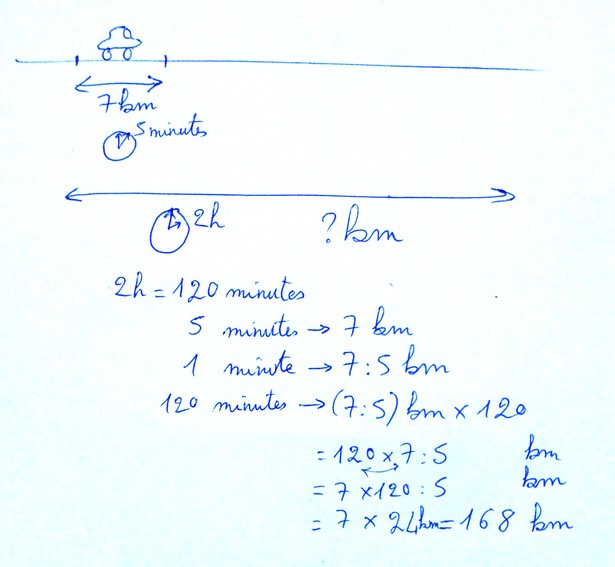 7 km
5 minutes
2h
? km
2h = 120 minutes
5 minutes → 7 km
1 minute → 7 : 5 km
120 minutes → (7 : 5) km × 120
= 120 × 7 : 5 km
= 7 × 120 : 5 km
= 7 × 24 km = 168 km